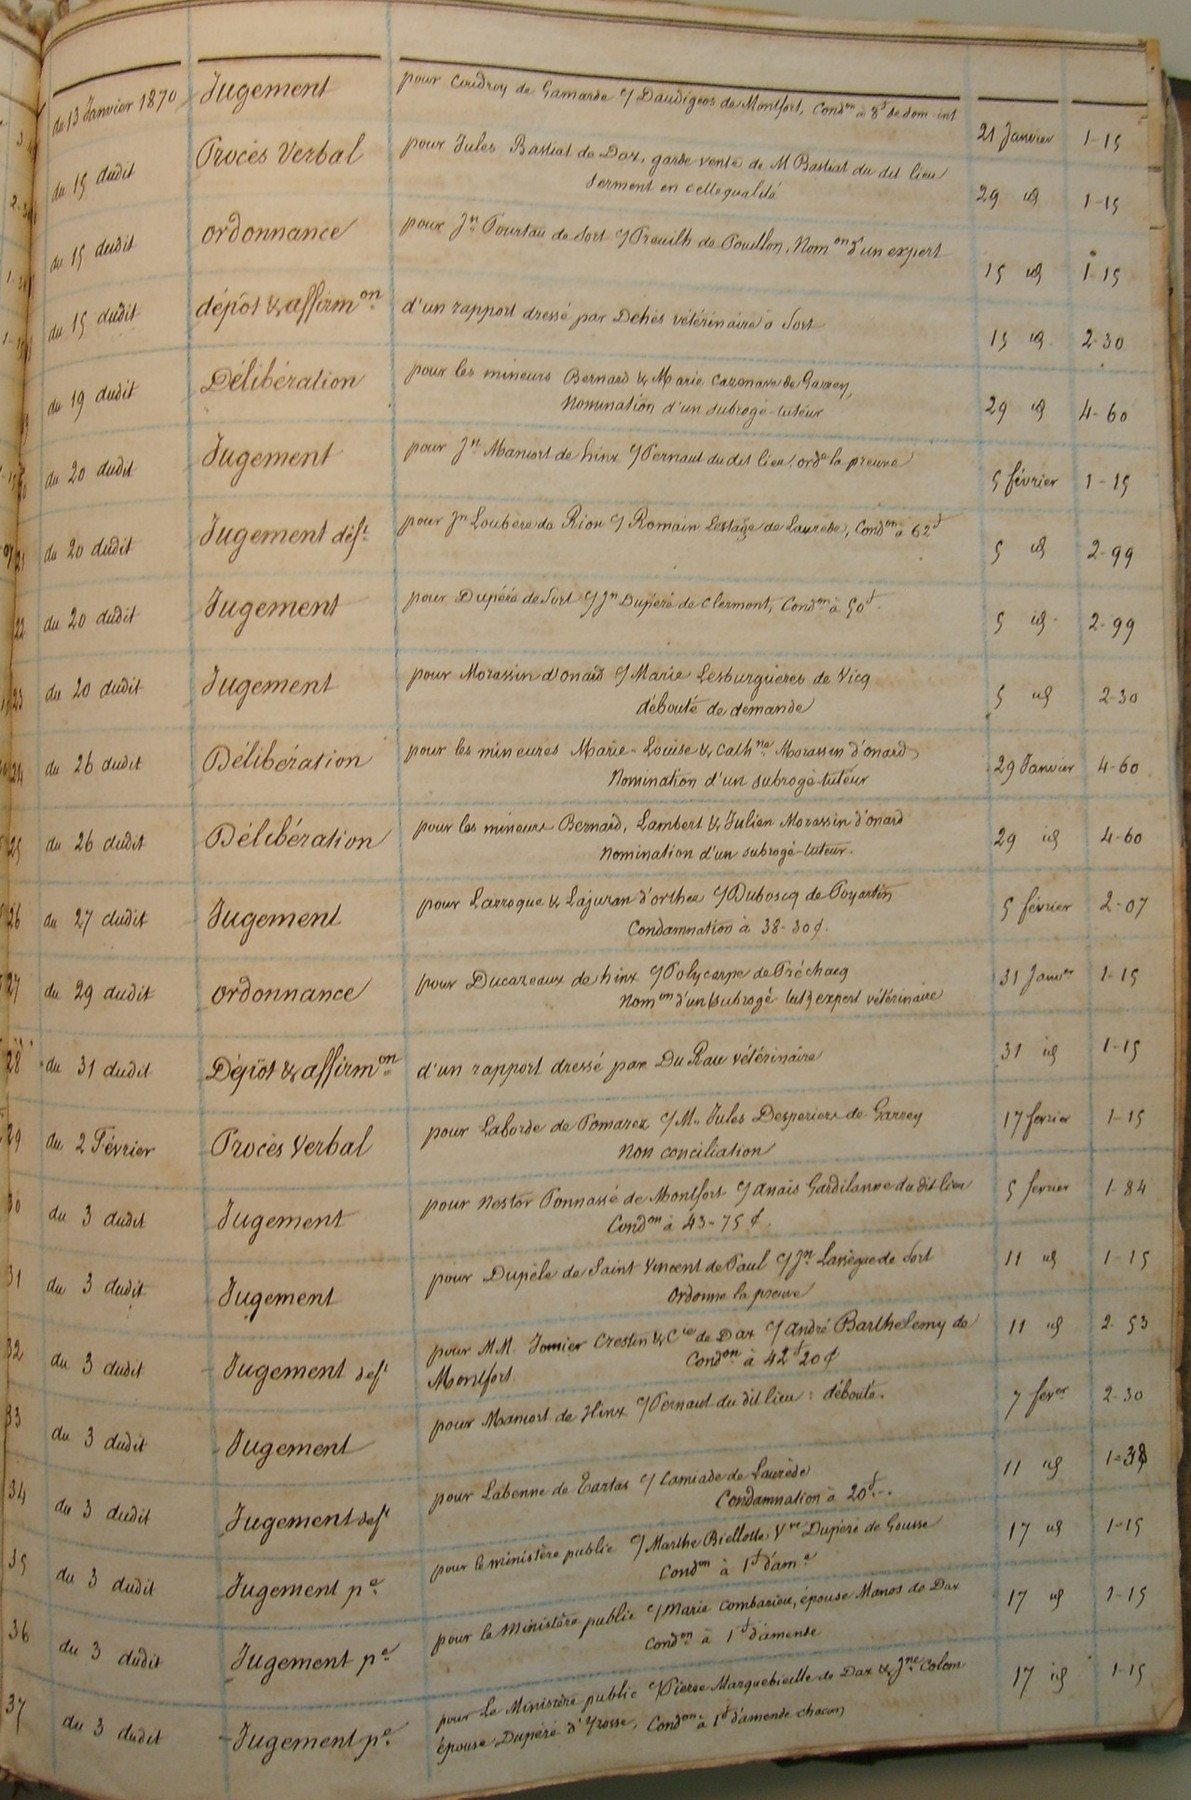 du 13 Janvier 1870 Jugement pour Coudroy de Gamarde c/ Daudigeos de Montfort, Condon à 8f de dom-int 21 Janvier 1-15
du 15 dudit Procès Verbal pour Jules Bastiat de Dax, garde vente de M Bastiat du dit lieu
serment en cette qualité 29 id 1-15
du 15 dudit ordonnance pour Jn Pourtau de Sort c/ Preuilh de Pouillon, Nomon d'un expert 15 id 1-15
du 15 dudit dépôt & affirmon d'un rapport dressé par Dehés vétérinaire à Sort 15 id 2-30
du 19 dudit Délibération pour les mineurs Bernard & Marie Cazenave de Garrey,
Nomination d'un subrogé-tuteur 29 id 4-60
du 20 dudit Jugement pour Jn Mamort de hinx c/ Pernaut du dit lieu, orde la preuve 5 février 1-15
21 du 20 dudit Jugement déft pour Jn Loubère de Rion c/ Romain Lestage de Laurède, Condon à 62f 5 id 2-99
22 du 20 dudit Jugement pour Dupéré de Sort c/ Jn Dupéré de Clermont, Condon à 50f. 5 id 2-99
23 du 20 dudit Jugement pour Morassin d'onard c/ Marie Lesburguères de Vicq
débouté de demande 5 id 2-30
24 du 26 dudit Délibération pour les mineures Marie-Louise & Cathne Morassin d'onard,
Nomination d'un subrogé-tuteur 29 Janvier 4-60
25 du 26 dudit Délibération pour les mineurs Bernard, Lambert & Julien Morassin d'onard
Nomination d'un subrogé-tuteur. 29 id 4-60
26 du 27 dudit Jugement pour Larroque & Lajuran d'orthez c/ Duboscq de Poyartin
Condamnation à 38-30 ¢. 5 février 2-07
27 du 29 dudit ordonnance pour Ducazeaux de hinx c/ Polycarpe de Préchacq
Nomon d'un (subrogé tut) expert vétérinaire 31 Janver 1-15
28 du 31 dudit Dépôt & affirmon d'un rapport dressé par Du Rau vétérinaire 31 id 1-15
29 du 2 Février Procès Verbal pour Laborde de Pomarez c/ M. Jules Desperiers de Garrey
Non conciliation 17 fevrier 1-15
30 du 3 dudit Jugement pour Nestor Ponnassé de Montfort c/ Anaïs Gardilanne du dit lieu
Condon à 43-75 ¢. 5 fevrier 1-84
31 du 3 dudit Jugement pour Dupéle de Saint Vincent de Paul c/ Jn Lassègue de Sort
Ordonne la preuve 11 id 1-15
32 du 3 dudit Jugement deft pour M.M. Jomier Crestin & Cie de Dax c/ André Barthelemy de
Montfort. Condon à 42f 20 ¢ 11 id 2-53
33 du 3 dudit Jugement pour Mamort de Hinx c/ Pernaut du dit lieu : débouté. 7 fever 2-30
34 du 3 dudit Jugement deft pour Labenne de Tartas c/ Camiade de Laurède
Condamnation à 20f. 11 id 1-38
35 du 3 dudit Jugement pce pour le ministère public c/ Marthe Biellotte Vve Dupéré de Gousse
Condon à 1f d'ame 17 id 1-15
36 du 3 dudit Jugement pce pour le Ministère public c/ Marie Combarieu, épouse Manos de Dax
Condon à 1f d'amende 17 id 1-15
37 du 3 dudit Jugement pce pour Le Ministère public c/ Pierre Marquebieille de Dax & Jne Colom
épouse Dupéré d'Yzosse, Condon à 1f d'amende chacun 17 id 1-15